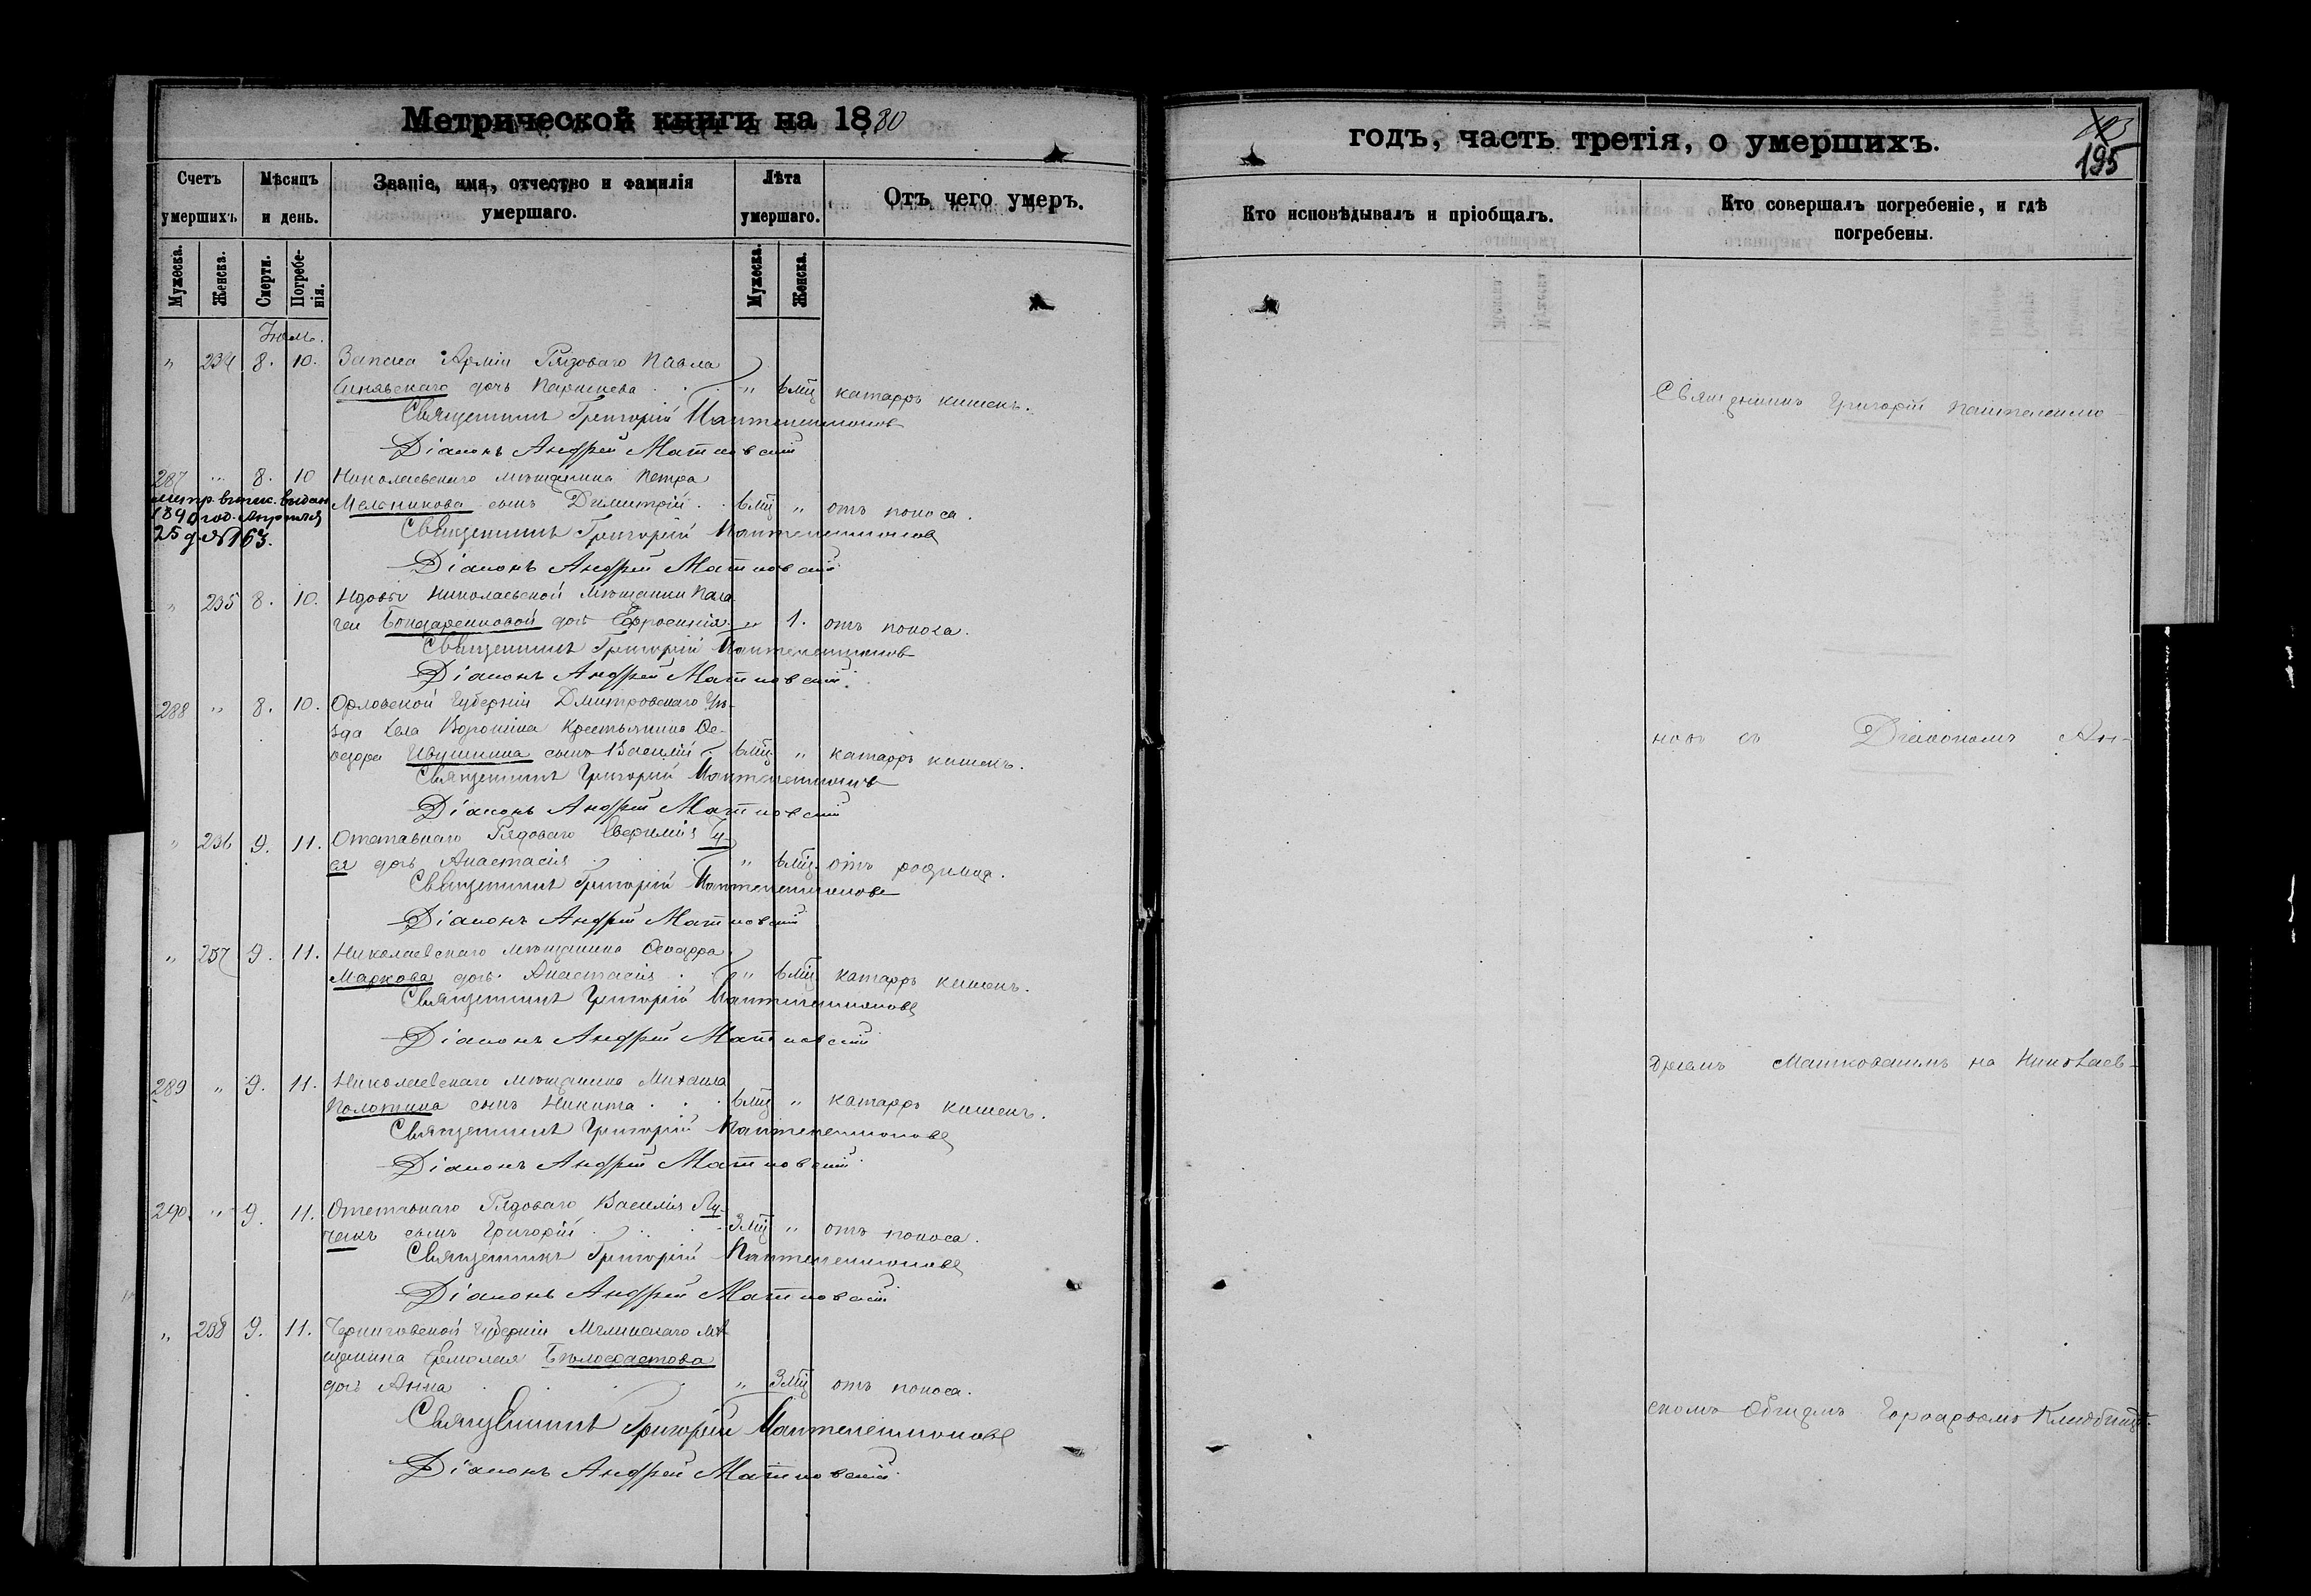 Метрической книги на 1880
Счетъ умершихъ.
Мѣсяцъ и день.
Званіе, имя, отчество и фамилія умершаго.
Лѣта умершаго.
Отъ чего умеръ.
Мужеска.
Женска.
Смерти.
Погребенія.
Мужеска.
Женска.
Іюль.
" 234 8. 10. Запаса Арміи Рядоваго Павла
Синявскаго дочь " 6 мц катарръ кишекъ.
Священникъ Григорій Пантелеимоновъ
Діаконъ Андрей Матковскій
287 " 8. 10 Николаевскаго мѣщанина Петра
Мельникова сынъ Димитрій . . 6 мц " отъ поноса.
метр. выпис. выдана
1890 год. Апрѣля
25 д. № 163.
Священникъ Григорій Пантелеимоновъ
Діаконъ Андрей Матковскій
" 235 8. 10. Вдовы Николаевской Мѣщанки Пела
геи Бондаренковой дочь Ефросинія " 1. отъ поноса.
Священникъ Григорій Пантелеимоновъ
Діаконъ Андрей Матковскій.
288 " 8. 10. Орловской Губерніи Дмитровскаго Уѣ-
зда Села Воронина Крестьянина Ѳе-
одора Ивушкина сынъ Василій . 6 мц " катарръ кишекъ.
Священникъ Григорій Пантелеимоновъ
Діаконъ Андрей Матковскій
" 236 9. 11. Отставнаго Рядоваго Евфимія Гу-
ся дочь Анастасія . . . " 6 мц. отъ родимца.
Священникъ Григорій Пантелеимоновъ
Діаконъ Андрей Матковскій
" 237 9. 11. Николаевскаго мѣщанина Ѳеодора
Маркова дочь Анастасія . . " 6 мц катарръ кишекъ.
Священникъ Григорій Пантелеимоновъ
Діаконъ Андрей Матковскій
289 " 9. 11. Николаевскаго мѣщанина Михаила
Полотина сынъ Никита . . . 6 мц " катарръ кишекъ.
Священникъ Григорій Пантелеимоновъ
Діаконъ Андрей Матковскій.
290. " 9. 11. Отставнаго Рядоваго Василія Лу-
ценкъ сынъ Григорій . . . 3 мц " отъ поноса.
Священникъ Григорій Пантелеимоновъ
Діаконъ Андрей Матковскій
" 238 9. 11. Черниговской Губерніи Мглинскаго мѣ
щанина Ермолая Бѣлохвостова
дочь Анна . . . " 3 мц отъ поноса.
Священникъ Григорій Пантелеимоновъ
Діаконъ Андрей Матковскій.
годъ, часть третія, о умершихъ.
195
Кто исповѣдывалъ и пріобщалъ.
Кто совершалъ погребеніе, и гдѣ погребены.
Священникъ Григорій Пантелеимо-
новъ съ Діакономъ Ан-
дреемъ Матковскимъ на Николаев-
скомъ Общемъ Городскомъ Кладбищѣ.